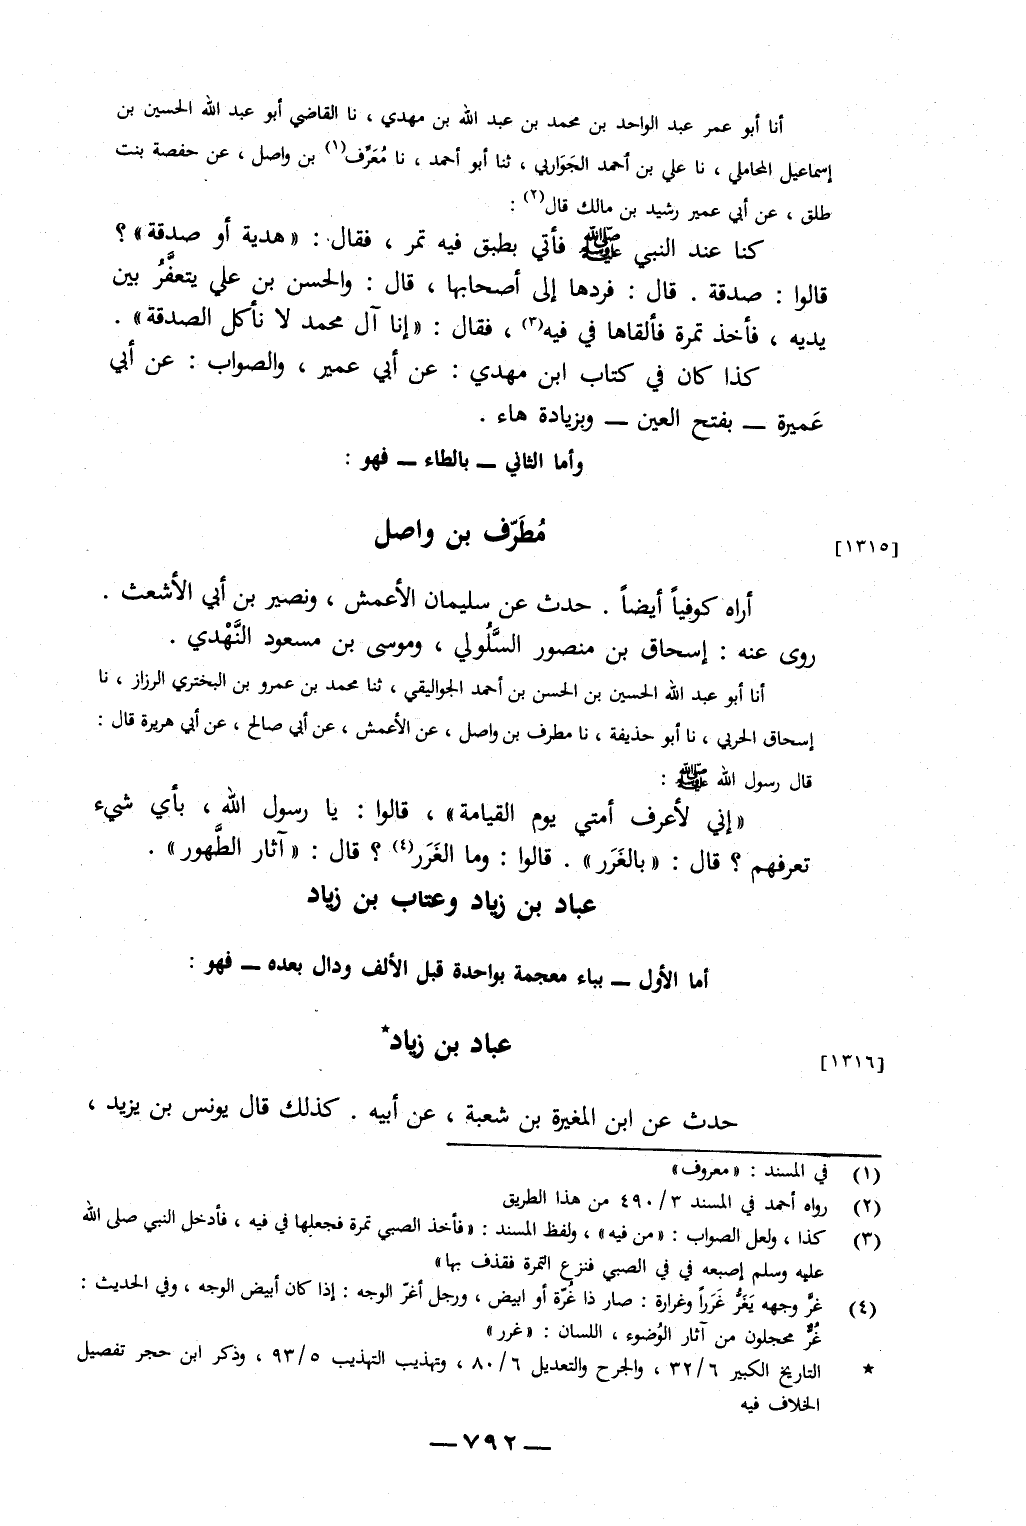 أنا أبو عمر عبد الواحد بن محمد بن عبد الله بن مهدي ، نا القاضي أبو عبد الله الحسين بن
إسماعيل المحاملي ، نا علي بن أحمد الجَوَاربي ، ثنا أبو أحمد ، نا مُعَرِّف(١) بن واصل ، عن حفصة بنت
طلق ، عن أبي عمير رشيد بن مالك قال(٢) :
كنا عند النبي ﷺ فأتي بطبق فيه تمر ، فقال : «هدية أو صدقة» ؟
قالوا : صدقة . قال : فردها إلى أصحابها ، قال : والحسن بن علي يتعفَّرُ بين
يديه ، فأخذ تمرة فألقاها في فيه(٣) ، فقال : «إنا آل محمد لا نأكل الصدقة» .
كذا كان في كتاب ابن مهدي : عن أبي عمير ، والصواب : عن أبي
عَميرة ــ بفتح العين ــ وبزيادة هاء .
وأما الثاني ــ بالطاء ــ فهو :
[١٣١٥] مُطَرّف بن واصل
أراه كوفياً أيضاً . حدث عن سليمان الأعمش ، ونصير بن أبي الأشعث .
روى عنه : إسحاق بن منصور السَّلُولي ، وموسى بن مسعود النَّهْدي .
أنا أبو عبد الله الحسين بن الحسن بن أحمد الجواليقي ، ثنا محمد بن عمرو بن البختري الرزاز ، نا
إسحاق الحربي ، نا أبو حذيفة ، نا مطرف بن واصل ، عن الأعمش ، عن أبي صالح ، عن أبي هريرة قال :
قال رسول الله ﷺ :
«إني لأعرف أمتي يوم القيامة» ، قالوا : يا رسول الله ، بأي شيء
تعرفهم ؟ قال : «بالغَرَر» . قالوا : وما الغَرَر(٤) ؟ قال : «آثار الطَّهور» .
عباد بن زياد وعتاب بن زياد
أما الأول ــ بباء معجمة بواحدة قبل الألف ودال بعده ــ فهو :
[١٣١٦] عباد بن زياد*
حدث عن ابن المغيرة بن شعبة ، عن أبيه . كذلك قال يونس بن يزيد ،
(١) في المسند : «معروف»
(٢) رواه أحمد في المسند ٤٩٠/٣ من هذا الطريق
(٣) كذا ، ولعل الصواب : «من فيه» ، ولفظ المسند : «فأخذ الصبي تمرة فجعلها في فيه ، فأدخل النبي صلى الله
عليه وسلم إصبعه في في الصبي فنزع التمرة فقذف بها»
(٤) غرَّ وجهه يَغَرُّ غَرَراً وغرارة : صار ذا غُرّة أو ابيض ، ورجل أغرّ الوجه : إذا كان أبيض الوجه ، وفي الحديث :
غُرٌّ محجلون من آثار الوُضوء ، اللسان : «غرر»
* التاريخ الكبير ٣٢/٦ ، والجرح والتعديل ٨٠/٦ ، وتهذيب التهذيب ٩٣/٥ ، وذكر ابن حجر تفصيل
الخلاف فيه
ــ ٧٩٢ ــ